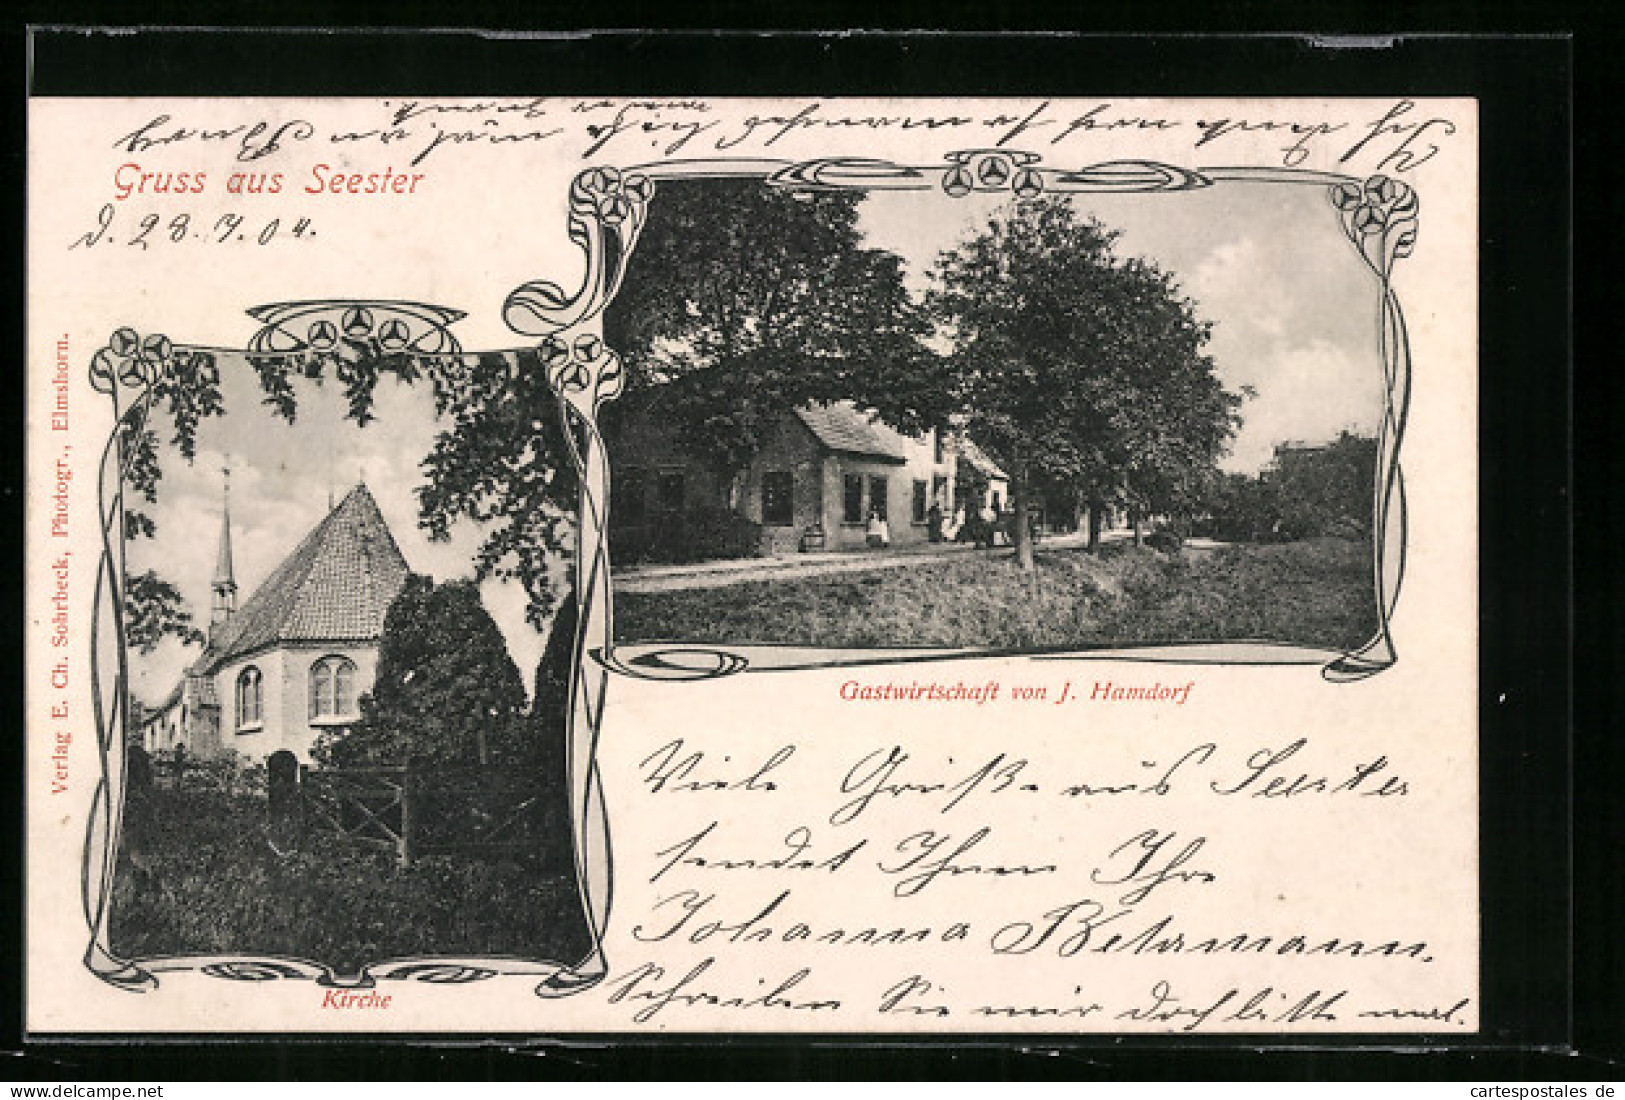 Gruss aus Seester
d. 28.7.04.
Verlag E. Ch. Sohrbeck, Photogr., Elmshorn.
Gastwirtschaft von J. Hamdorf
Kirche
Viele Grüße aus Seester
sendet Ihnen Ihre
Johanna Behrmann.
Schreiben Sie mir doch bitte mal.
cartespostales de